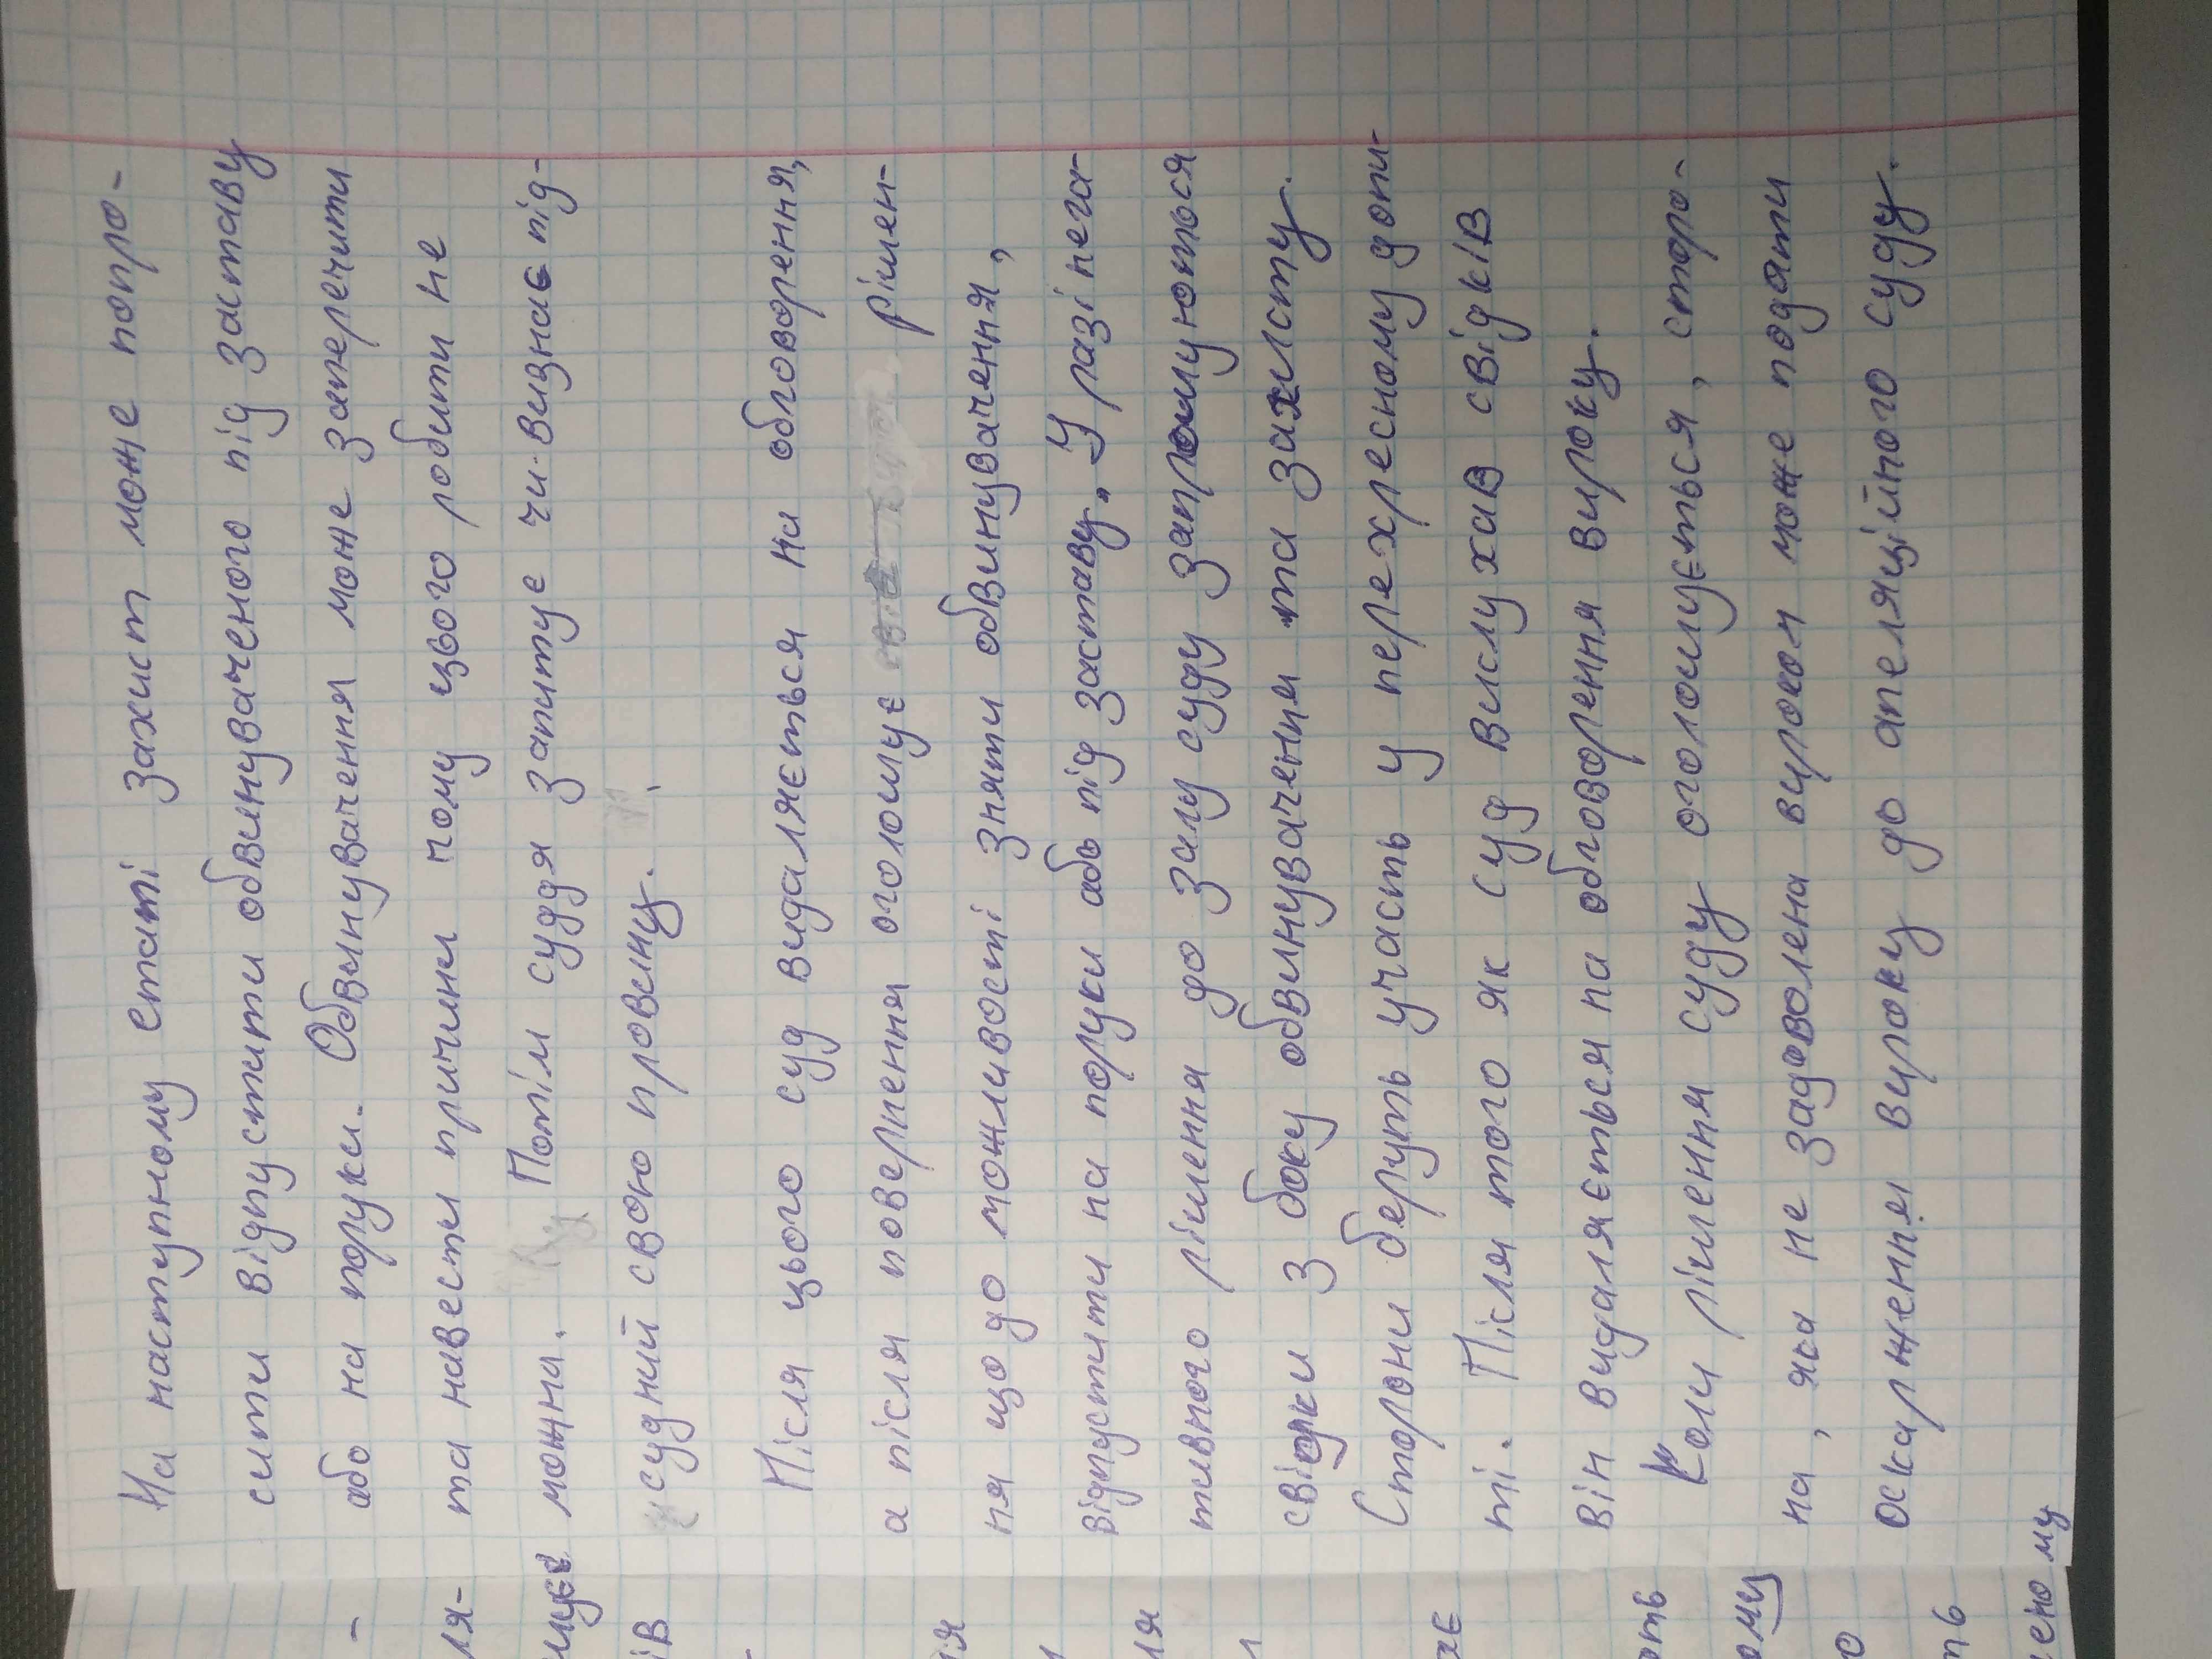 На наступному етапі захист може попро-
сити відпустити обвинуваченого під заставу
або на поруки. Обвинувачення може заперечити
та навести причини чому цього робити не
можна. Потім суддя запитує чи визнає під-
судний свою провину.
Після цього суд видаляється на обговорення,
а після повернення оголошує рішен-
ня що до можливості зняти обвинувачення,
відпустити на поруки або під заставу. У разі нега-
тивного рішення до залу суду запрошуються
свідки з боку обвинувачення та захисту.
Сторони беруть участь у перехресному допи-
ті. Після того як суд вислухав свідків
він видаляється на обговорення вироку.
Коли рішення суду оголошується, сторо-
на, яка не задоволена вироком може подати
оскарження вироку до апеляційного суду.
-
ля-
мує
ів
-
ія
ля
ає
ать
ому
о
ть
ному